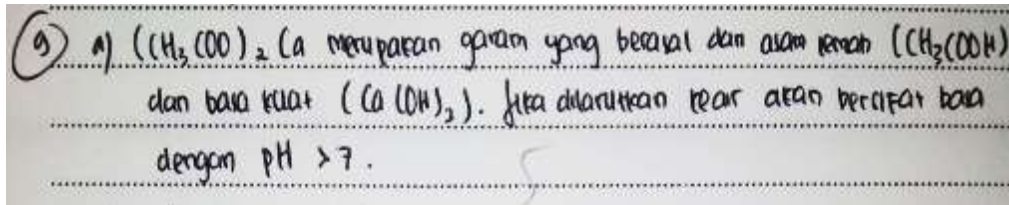 9) a) (CH3COO)2 Ca merupakan garam yang berasal dari asam lemah (CH3COOH)
dan basa kuat (Ca(OH)2). Jika dilarutkan akan bersifat basa
dengan pH >7.